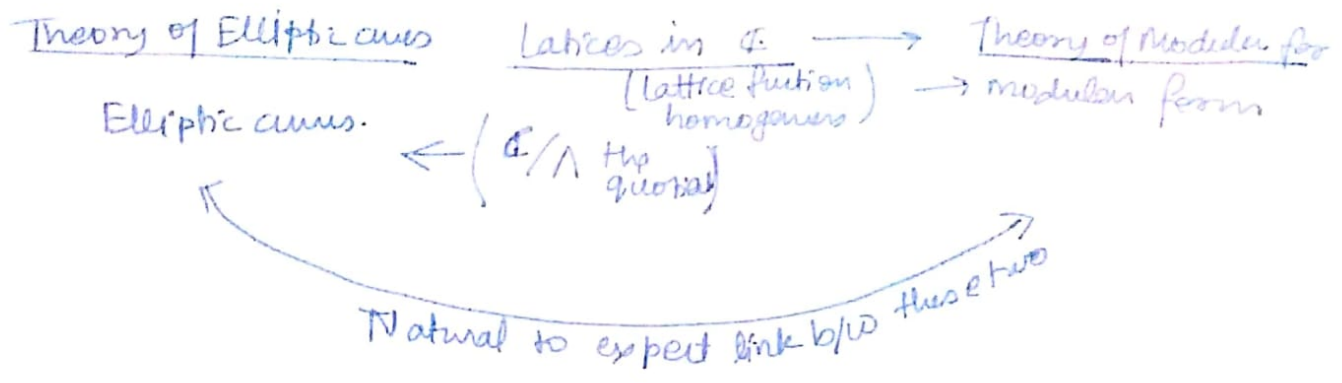 Theory of Elliptic curves Latices in ℂ → Theory of Modular for
(lattice function homogenous) → modular form
Elliptic curves.
← (ℂ/Λ the quotient)
Natural to expect link b/w these two